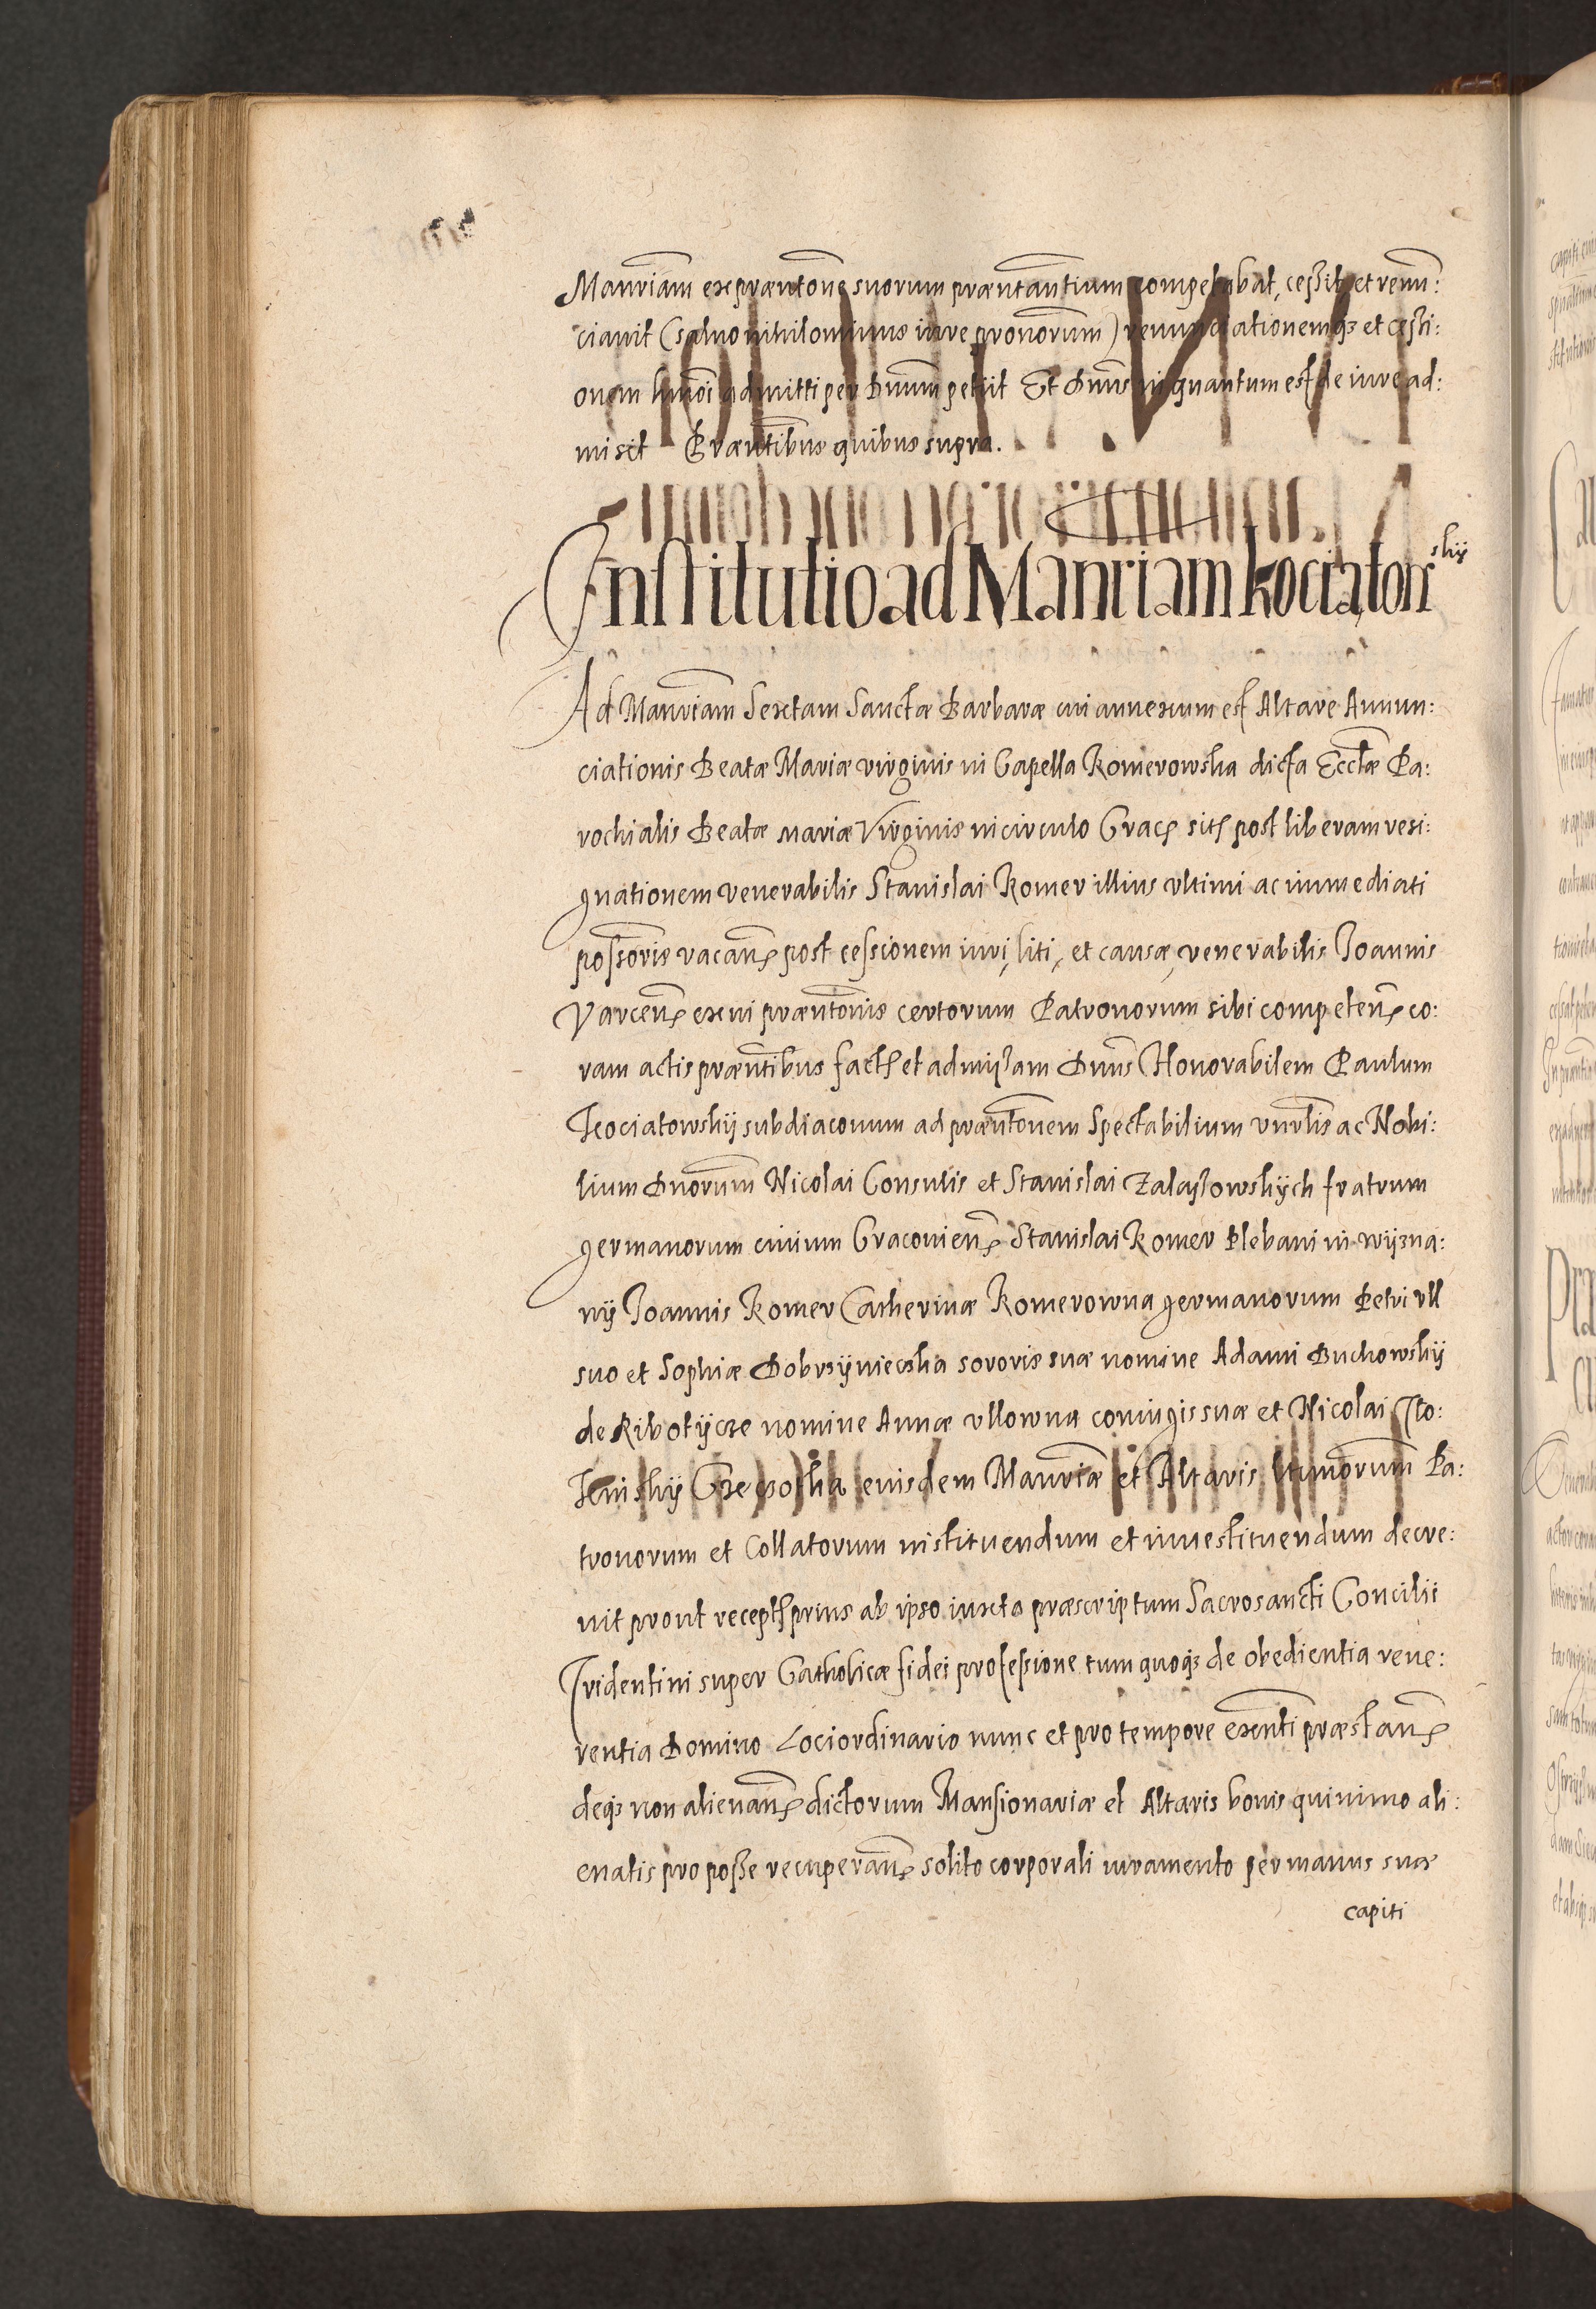 Manriam ex præntone suorum præntantium competebat, cessit, et renun:
ciavit (salvo nihilominus iure pronorum) renunciationemq3 et cessi:
onem hmoi admitti per Dnum petiit Et Dnus in quantum est de iure ad:
misit Præntibus quibus supra.
Institutio ad Manriam Kociatows
skij
Ad Manriam Sextam Sanctæ Barbaræ cui annexum est Altare Annun:
ciationis Beatæ Mariæ virginis in Capella Komerowska dicta Ecclæ Pa:
rochialis Beatæ mariæ Virginis in circulo Crac sit post liberam resi:
gnationem venerabilis Stanislai Komer illius ultimi ac immediati
possoris vacan post cessionem iuri, liti, et causæ venerabilis Joannis
Varcen ex vi præntonis certorum Patronorum sibi competen co:
ram actis præntibus fact et admissam Dnus Honorabilem Paulum
Kociatowskij subdiaconum ad præntonem Spectabilium vnrlis ac Nobi:
lium Dnorum Nicolai Consulis et Stanislai Zalaszowskijch fratrum
germanorum civium Cracovien Stanislai Komer Plebani in wijzna:
nij Joannis Komer Catherinæ Komerowna germanorum Petri vll
suo et Sophiæ Dobrzijniecska sororis suæ nomine Adami Buchowskij
de Ribotijcze nomine Annæ vllowna coniugis suæ et Nicolai Jto:
Kenskij eiusdem Manriæ et Altaris ltimorum Pa:
tronorum et Collatorum instituendum et investituendum decre:
vit prout recept prius ab ipso iuxta præscriptum Sacrosancti Concilii
Tridentini super Catholicæ fidei professione tum quoq3 de obedientia reve:
rentia Domino Lociordinario nunc et pro tempore exenti præstan
deq3 non alienan dictorum Mansionariæ et Altaris bonis quinimo ali:
enatis pro posse recuperan solito corporali iuramento per manus suæ
capiti